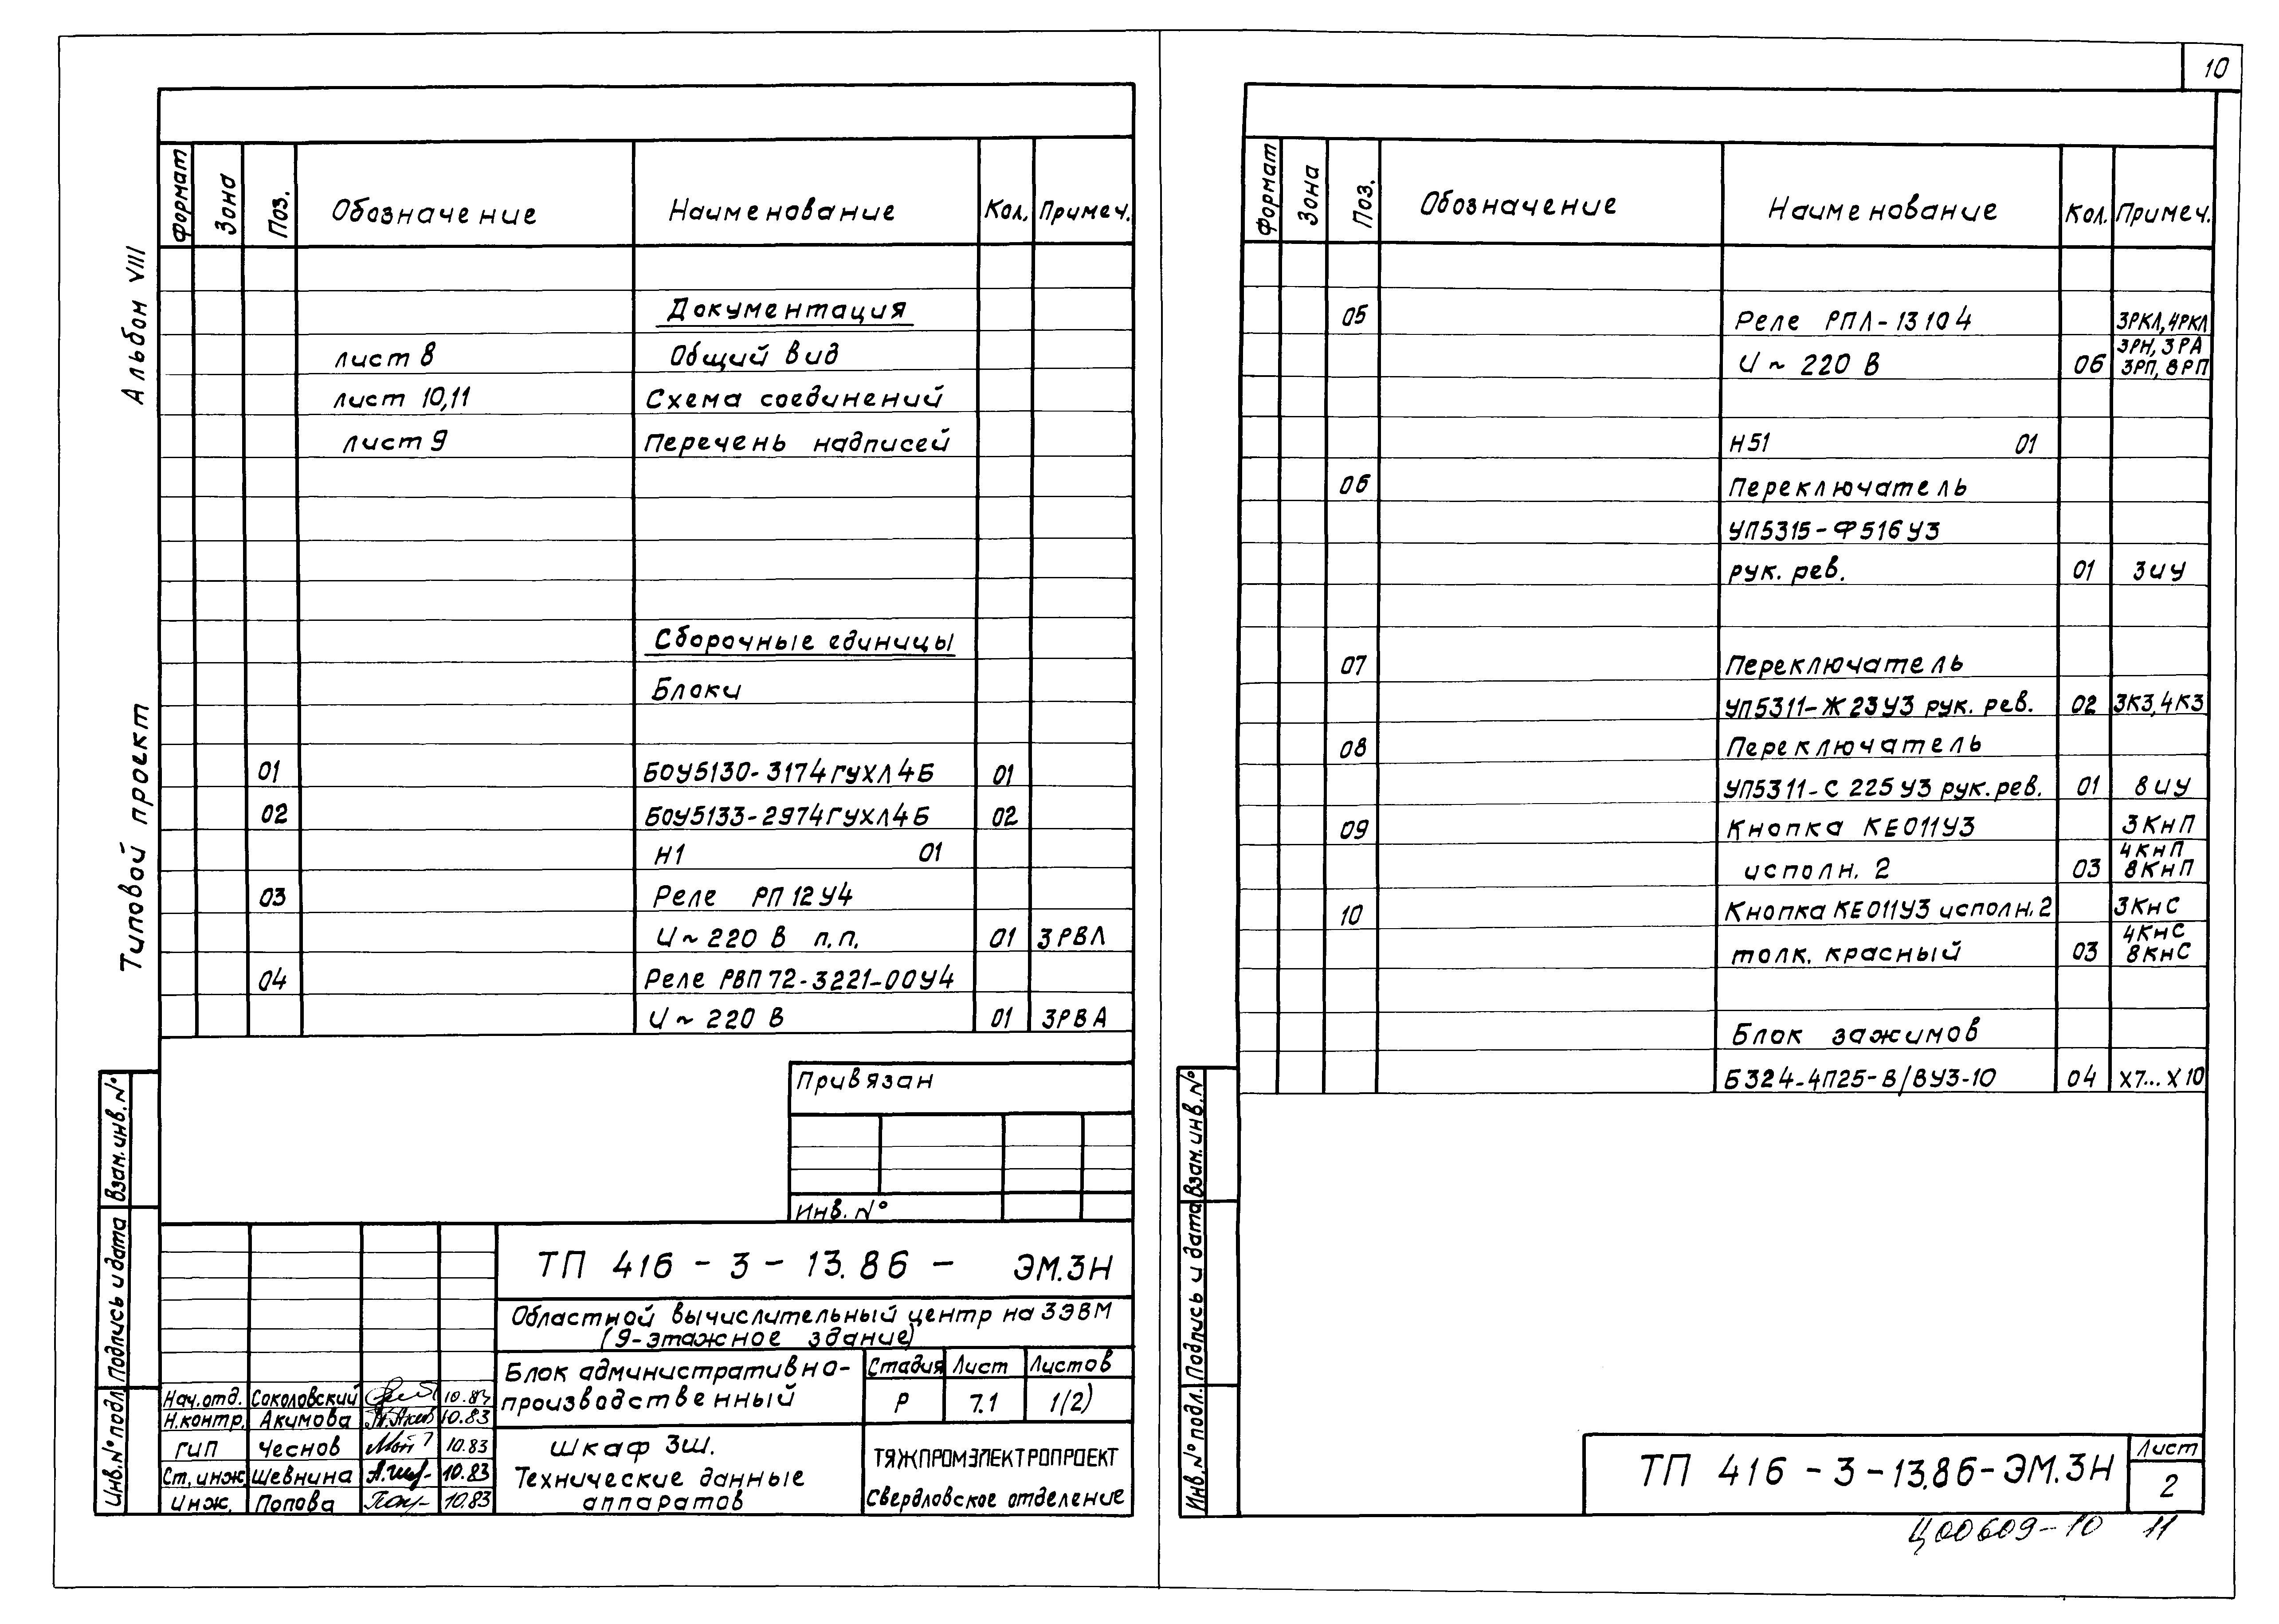 10
Альбом VIII
Типовой проект
Формат Зона Поз. Обозначение Наименование Кол. Примеч.
Документация
лист 8 Общий вид
лист 10,11 Схема соединений
лист 9 Перечень надписей
Сборочные единицы
Блоки
01 БОУ5130-3174ГУХЛ4Б 01
02 БОУ5133-2974ГУХЛ4Б 02
Н1 01
03 Реле РП12У4
U ~ 220 В п.п. 01 3РВЛ
04 Реле РВП72-3221-00У4
U ~ 220 В 01 3РВА
Привязан
Инв. №
Взам. инв. №
Подпись и дата
Инв. № подл.
ТП 416 - 3 - 13.86 - ЭМ.3Н
Областной вычислительный центр на 3ЭВМ
(9-этажное здание)
Блок административно-
производственный
Стадия Лист Листов
Р 7.1 1(2)
Нач.отд. Соколовский 10.83
Н.контр. Акимова 10.83
ГИП Чеснов 10.83
Ст.инж. Шевнина 10.83
Инж. Попова 10.83
Шкаф 3Ш.
Технические данные
аппаратов
ТЯЖПРОМЭЛЕКТРОПРОЕКТ
Свердловское отделение
Формат Зона Поз. Обозначение Наименование Кол. Примеч.
05 Реле РПЛ-13104 3РКЛ, 4РКЛ
3РН, 3РА
U ~ 220 В 06 3РП, 8РП
Н51 01
06 Переключатель
УП5315-Ф516У3
рук. рев. 01 3ИУ
07 Переключатель
УП5311-Ж23У3 рук. рев. 02 3К3, 4К3
08 Переключатель
УП5311-С225У3 рук. рев. 01 8ИУ
09 Кнопка КЕ011У3 3КнП
4КнП
исполн. 2 03 8КнП
10 Кнопка КЕ011У3 исполн. 2 3КнС
4КнС
толк. красный 03 8КнС
Блок зажимов
Б324-4П25-В/ВУ3-10 04 Х7...Х10
Взам. инв. №
Подпись и дата
Инв. № подл.
ТП 416 - 3 - 13.86 - ЭМ.3Н
Лист
2
Ц00609-10 11